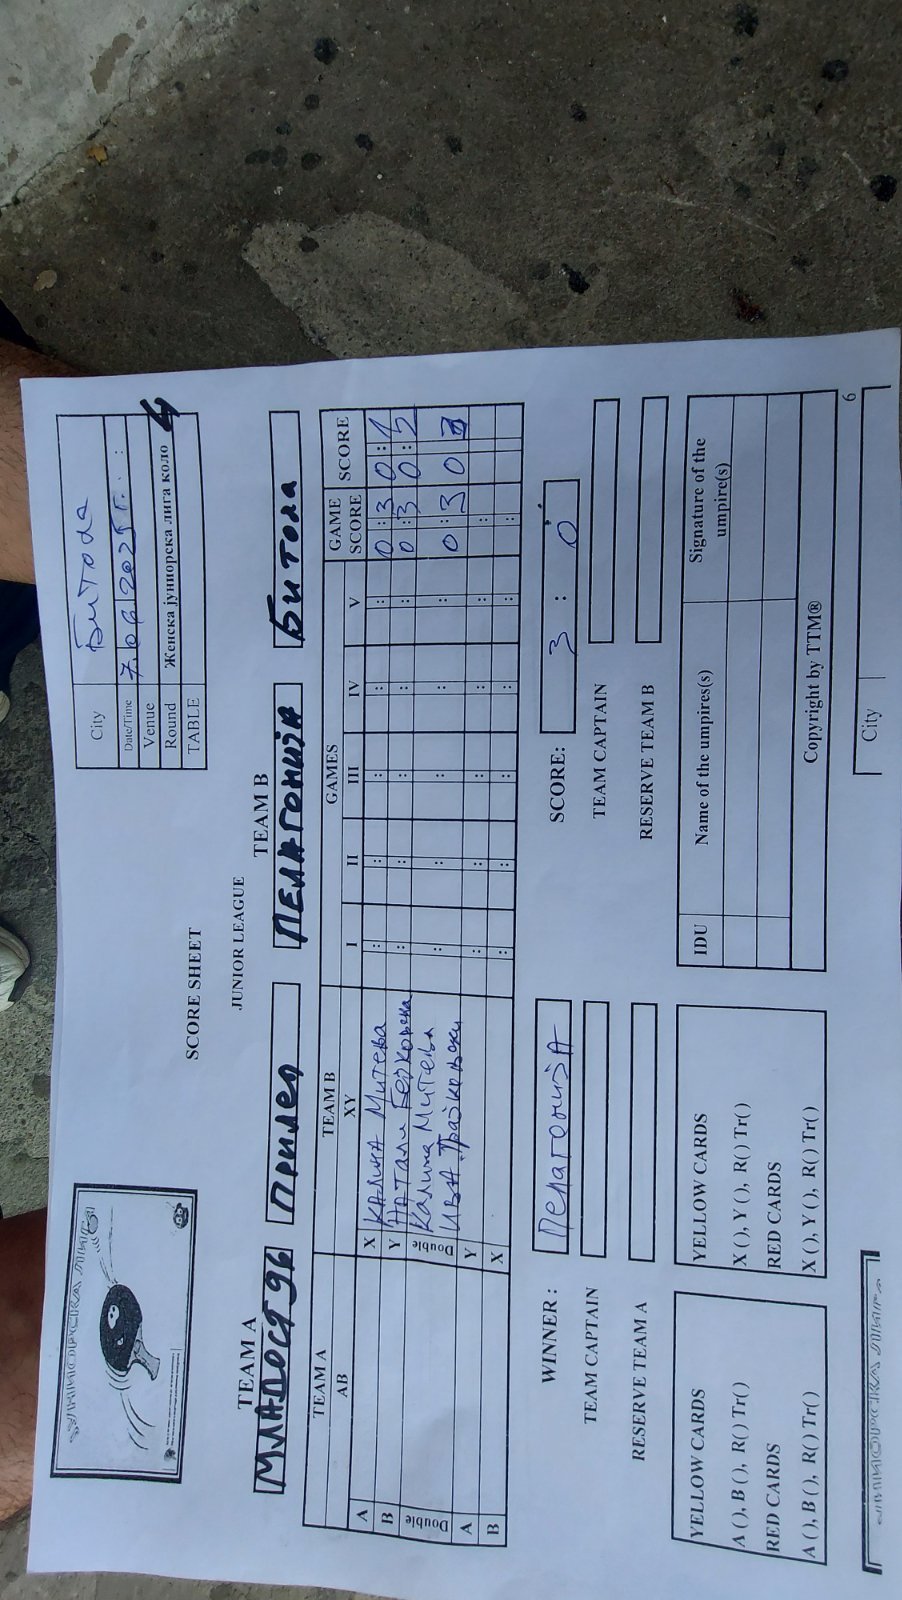 City Битола
Date/Time 7.06.2025г. :
Venue
Round Женска јуниорска лига коло 4
TABLE
SCORE SHEET
JUNIOR LEAGUE
TEAM A TEAM B
МЛАДОСТ 96 ПРИЛЕП ПЕЛАГОНИЈА БИТОЛА
TEAM A TEAM B GAMES GAME SCORE SCORE
AB XY I II III IV V
A X КАЛИНА Митева : : : : : 0:3 0:1
B Y НАТАЛИ : : : : : 0:3 0:2
Double Double Калина Митева : : : : : 0:3 0 3
ИВА
A Y : : : : : :
B X : : : : : :
WINNER : Пелагонија SCORE: 3 : 0
TEAM CAPTAIN TEAM CAPTAIN
RESERVE TEAM A RESERVE TEAM B
YELLOW CARDS
A (), B (), R() Tr()
RED CARDS
A (), B (), R() Tr()
YELLOW CARDS
X (), Y (), R() Tr()
RED CARDS
X (), Y (), R() Tr()
IDU Name of the umpires(s) Signature of the umpire(s)
Copyright by TTM®
6
City